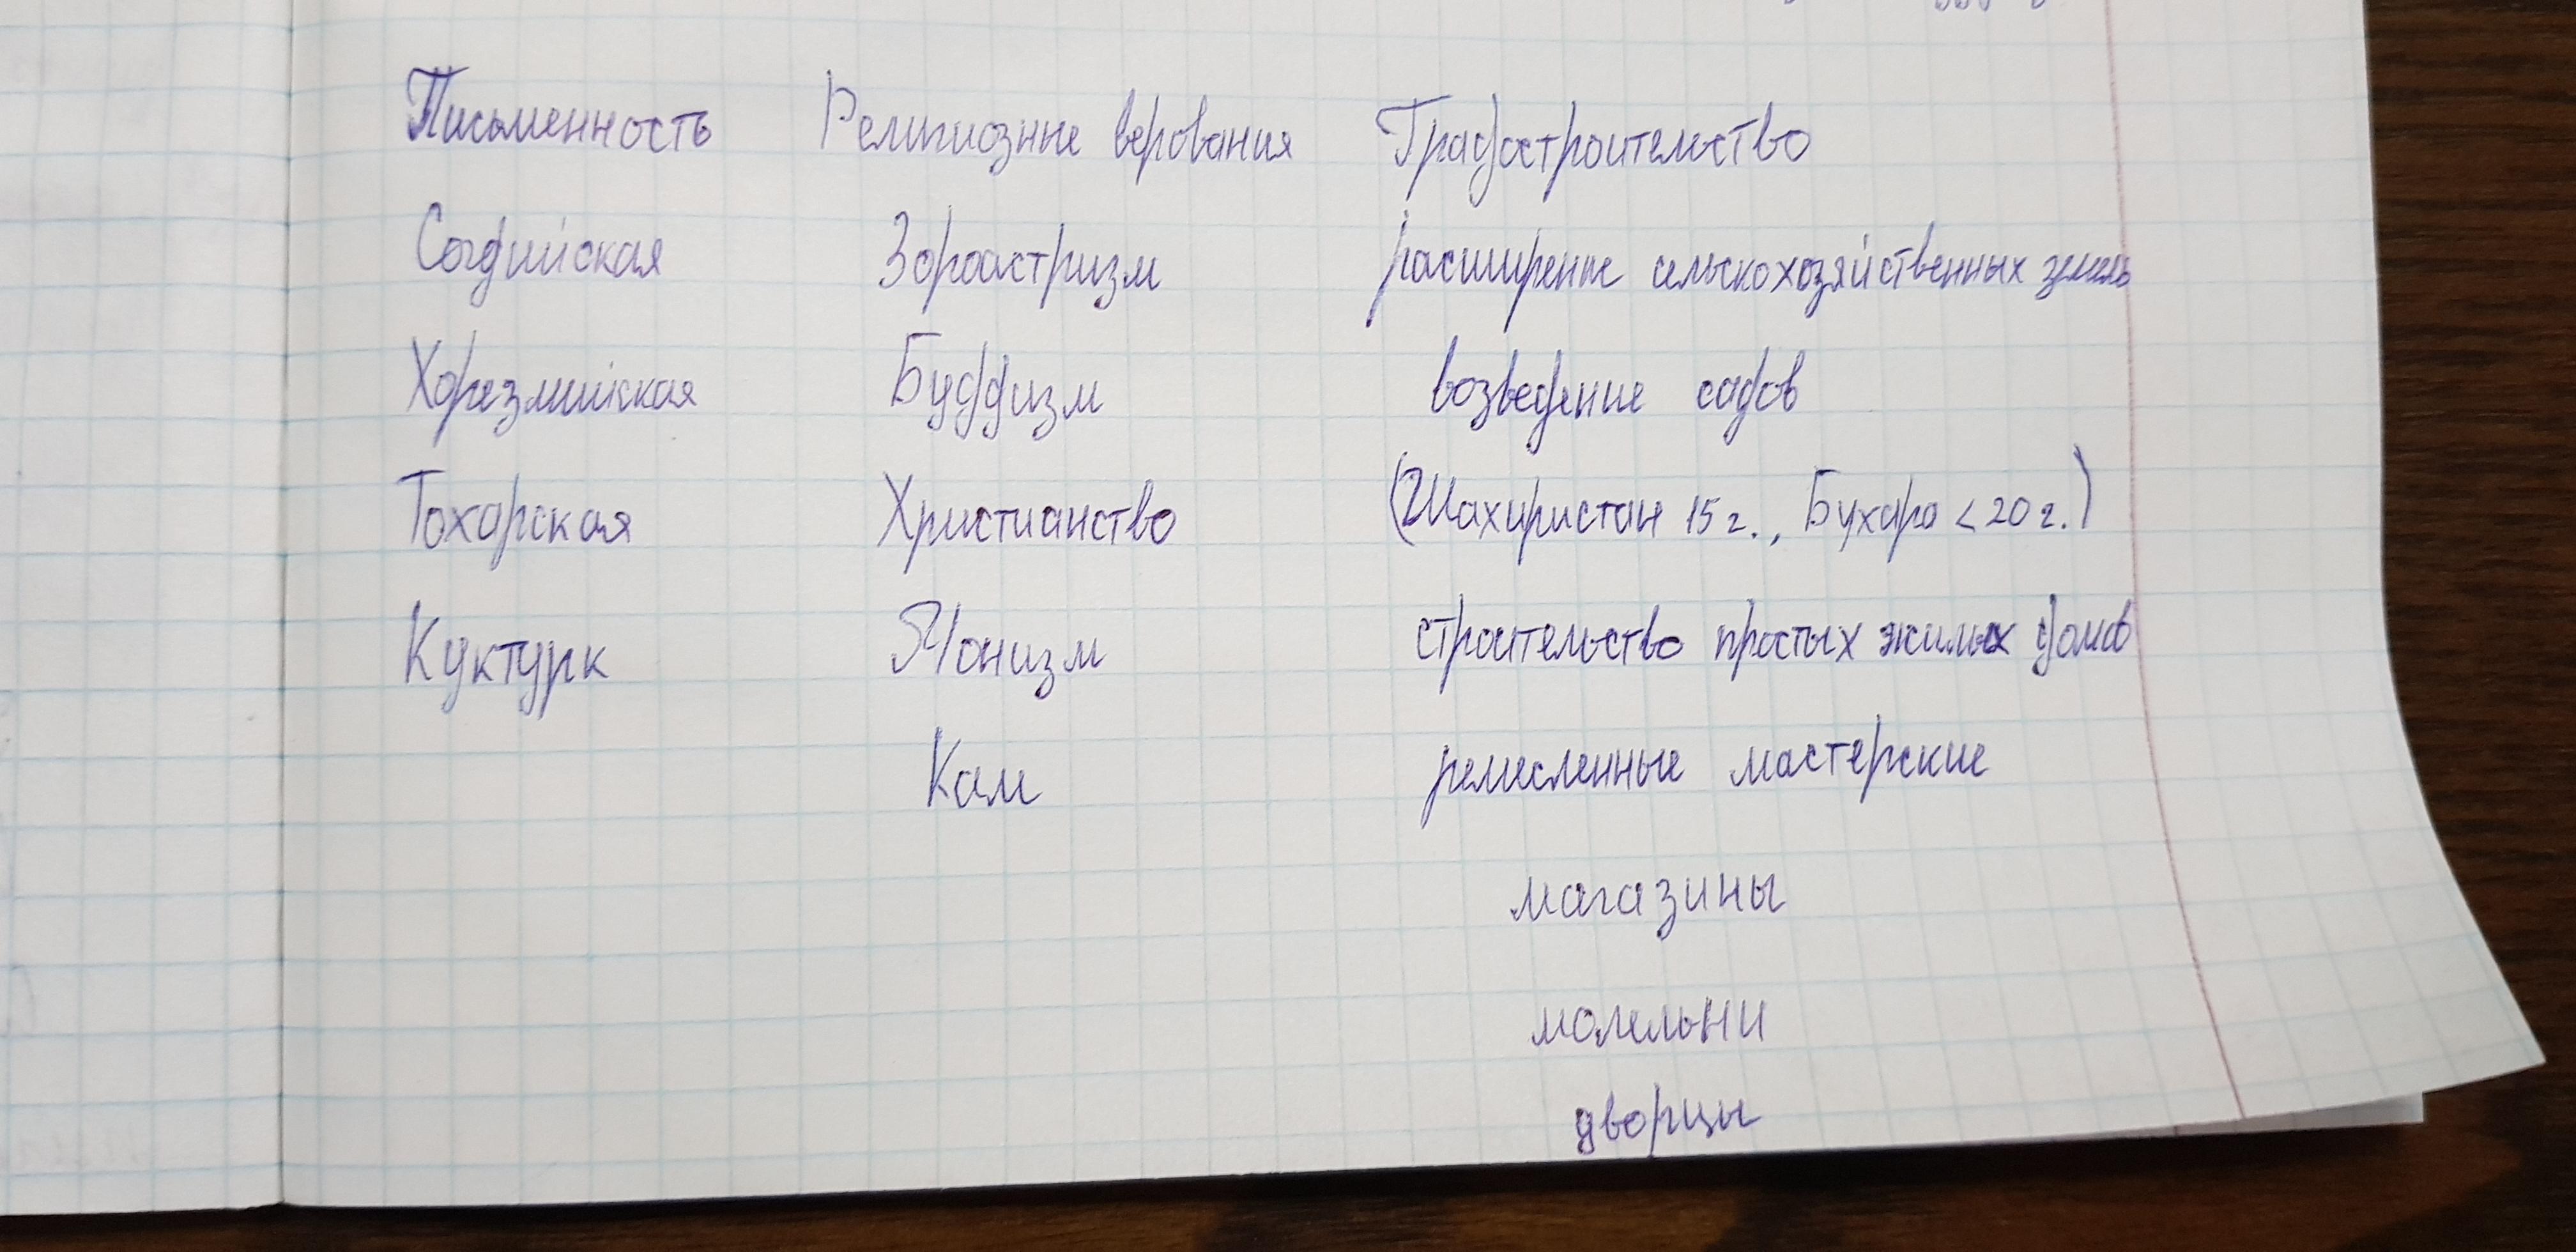 Письменность Религиозные верования Градостроительство
Согдийская Зороастризм расширение сельскохозяйственных земель
Хорезмийская Буддизм возведение садов
Тохарская Христианство (Шахиристан 15 г., Бухара < 20 г.)
Куктурк строительство простых жилых домов
Кам ремесленные мастерские
магазины
молельни
дворцы